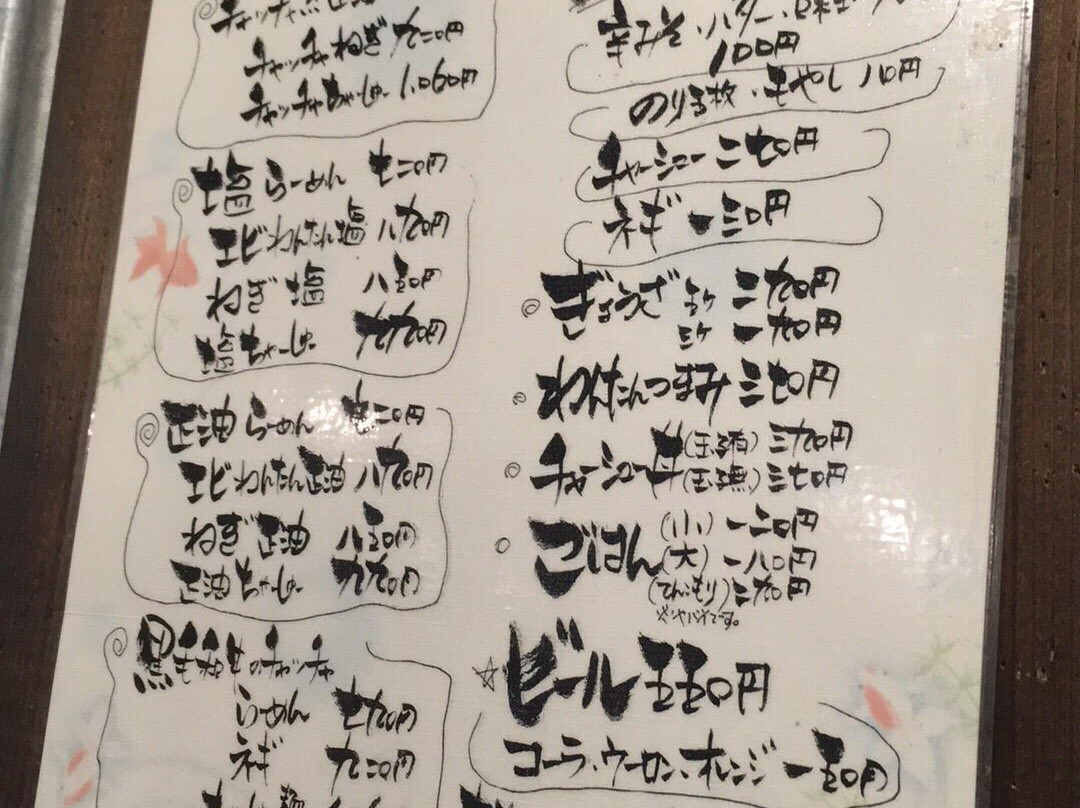 チャッチャ正油
チャッチャねぎ 九二〇円
チャッチャちゃーしゅー 1,060円
塩らーめん 七二〇円
エビわんたん塩 八九〇円
ねぎ塩 八五〇円
塩ちゃーしゅー 九九〇円
正油らーめん 七二〇円
エビわんたん正油 八九〇円
ねぎ正油 八五〇円
正油ちゃーしゅー 九九〇円
黒毛和牛のチャッチャ
らーめん 七九〇円
ネギ 九二〇円
辛みそ・バター・
100円
のり5枚・もやし 110円
チャーシュー 二七〇円
ネギ 一三〇円
ぎょうざ 五ケ 二九〇円
三ケ 一九〇円
わんたんつまみ 三七〇円
チャーシュー丼(玉子有) 三九〇円
(玉子無) 三七〇円
ごはん(小) 一二〇円
(大) 一八〇円
(てんこもり) 二九〇円
※ヤバイです。
☆ビール 五五〇円
コーラ、ウーロン、オレンジ 一五〇円